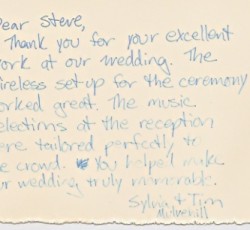 ear Steve,
Thank you for your excellent
ork at our wedding. The
ireless set-up for the ceremony
orked great. The music
elections at the reception
ere tailored perfectly to
e crowd. You helped make
ur wedding truly memorable.
Sylvia + Tim